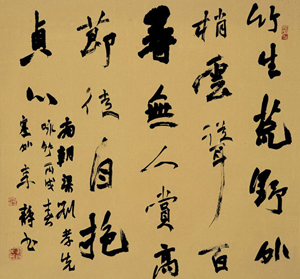 竹生荒野外
梢雲聳百
尋無人賞高
節徒自抱
貞心
南朝梁劉孝先
詠竹丙戌春